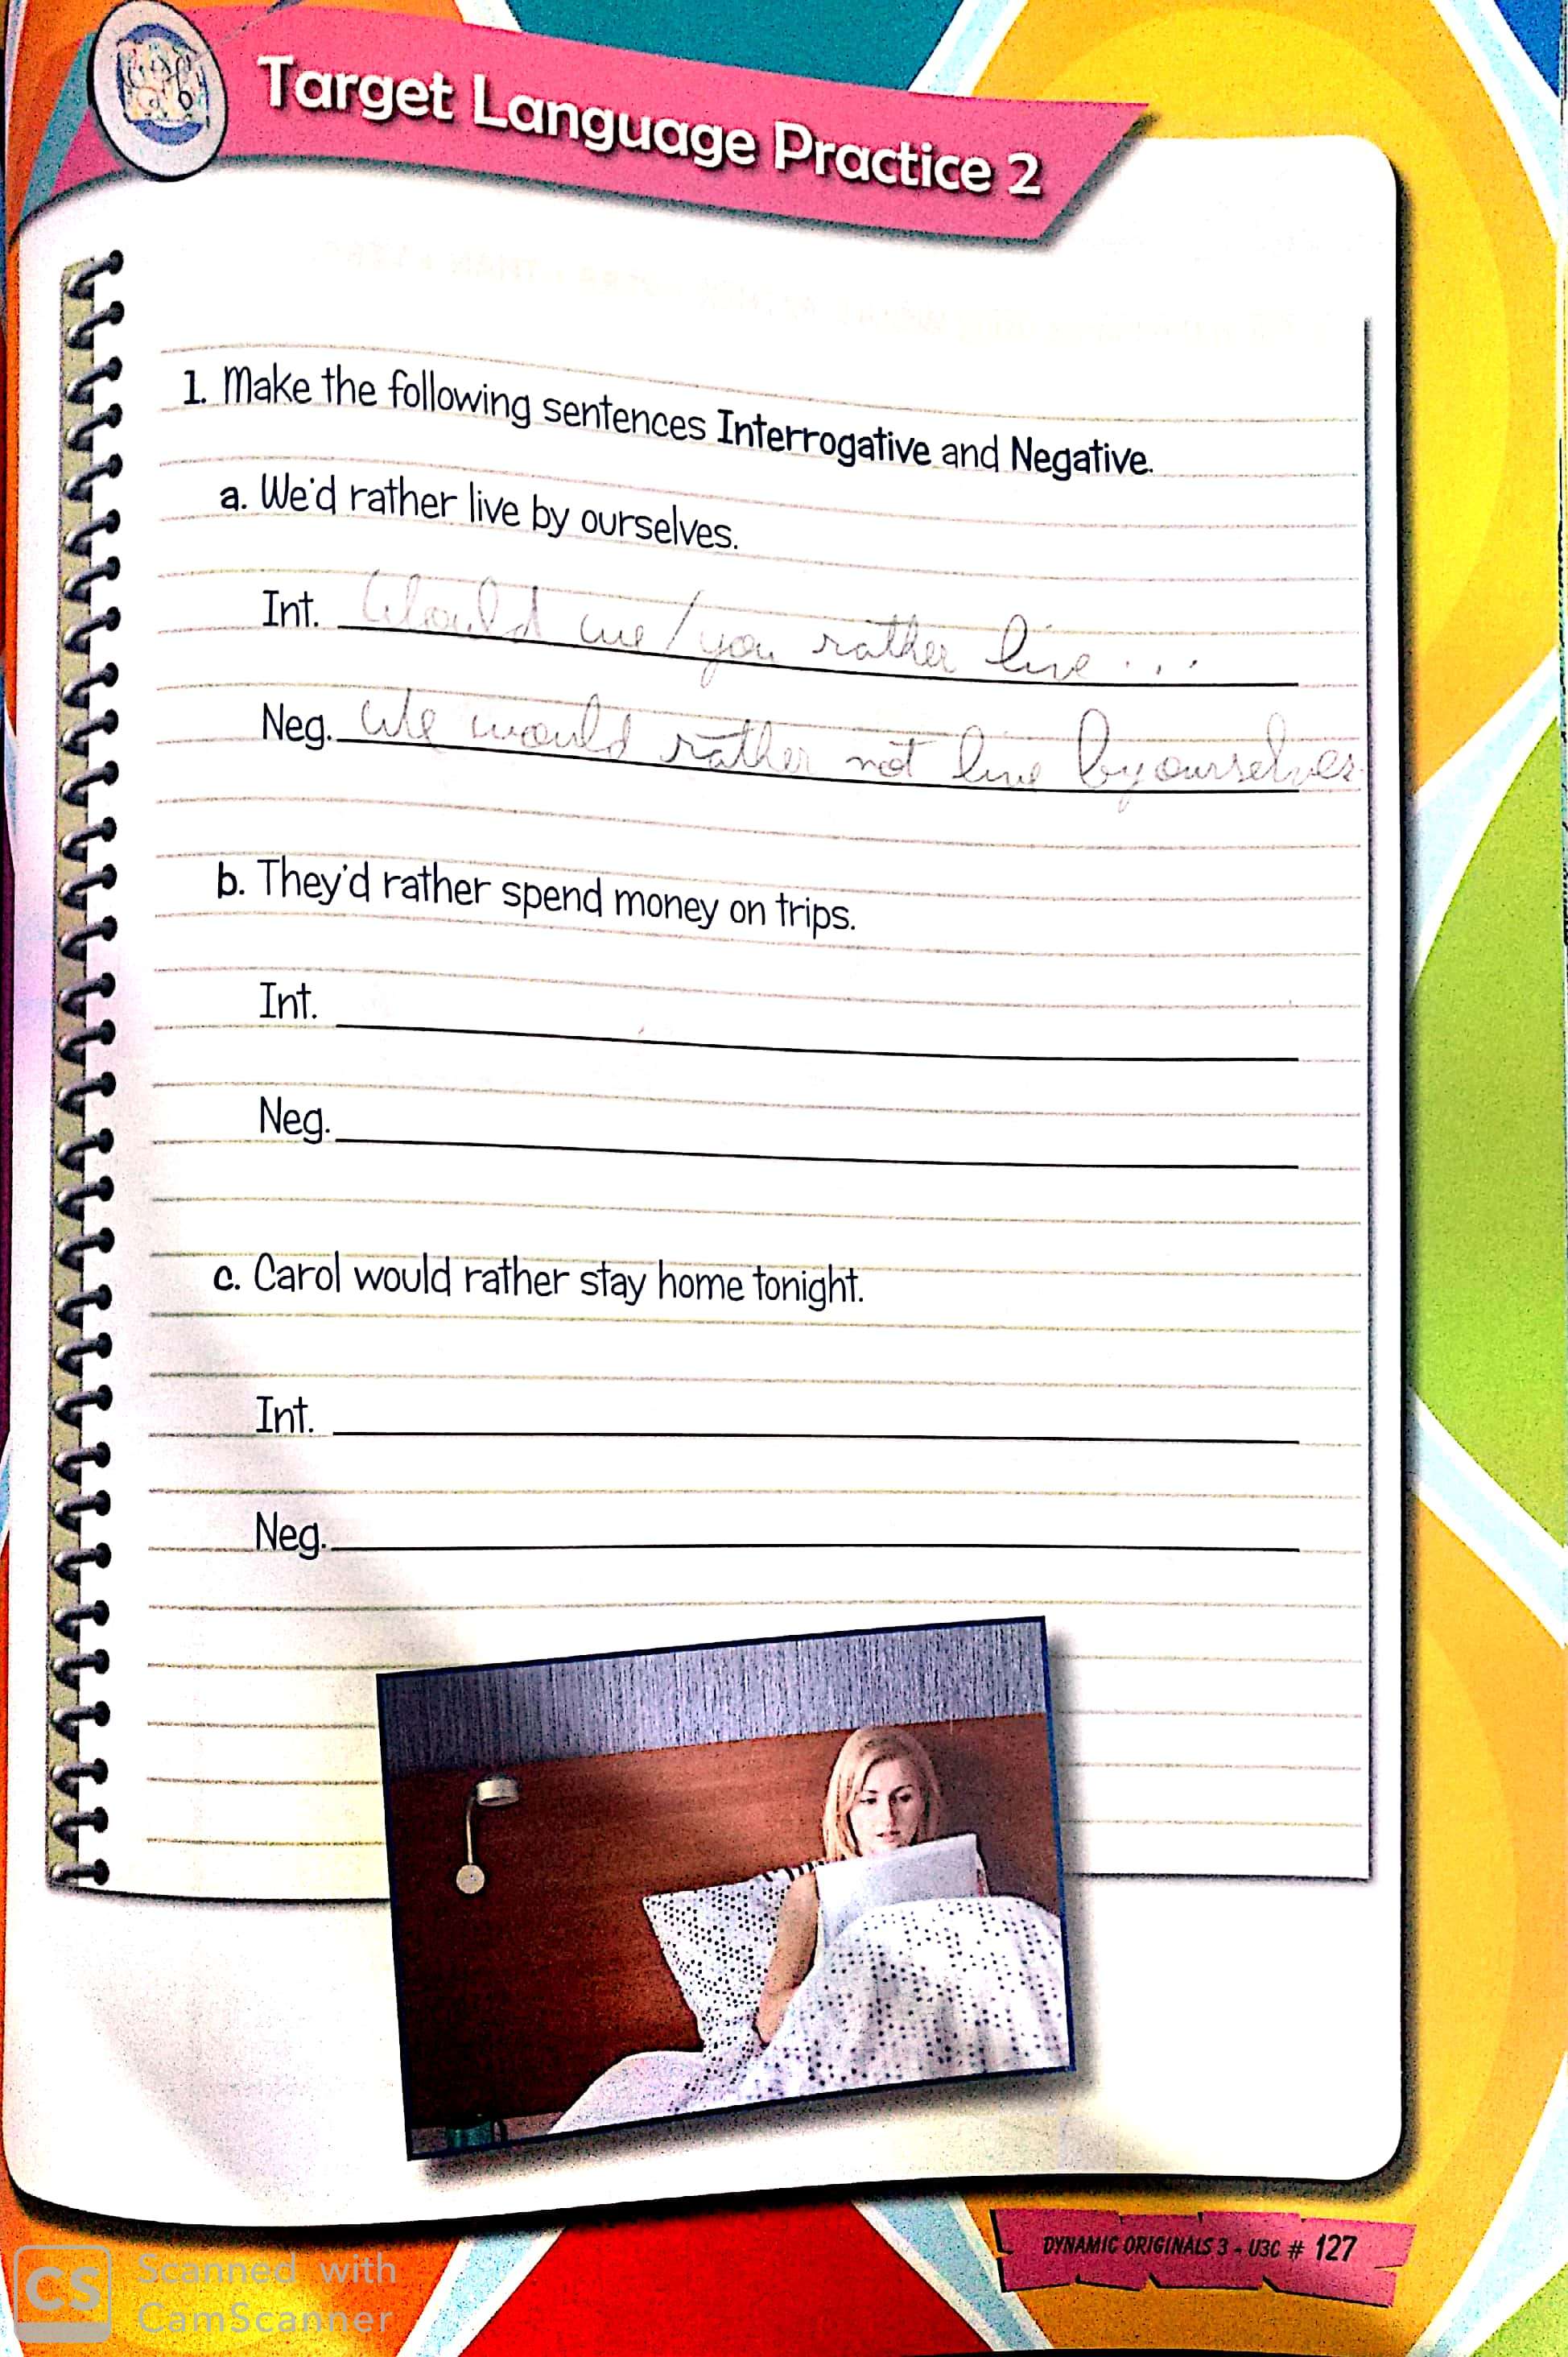 Target Language Practice 2
1. Make the following sentences Interrogative and Negative.
a. We'd rather live by ourselves.
Int. Would we/you rather live...
Neg. We would rather not live by ourselves.
b. They'd rather spend money on trips.
Int.
Neg.
c. Carol would rather stay home tonight.
Int.
Neg.
DYNAMIC ORIGINALS 3 - U3C # 127
CS Scanned with
CamScanner